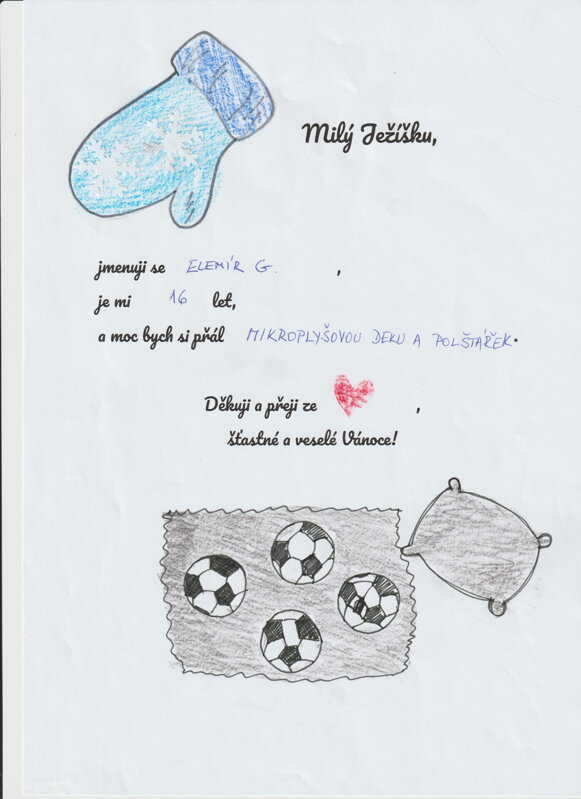 Milý Ježíšku,
jmenuji se ELEMÍR G. ,
je mi 16 let,
a moc bych si přál MIKROPLYŠOVOU DEKU A POLŠTÁŘEK.
Děkuji a přeji ze ,
šťastné a veselé Vánoce!